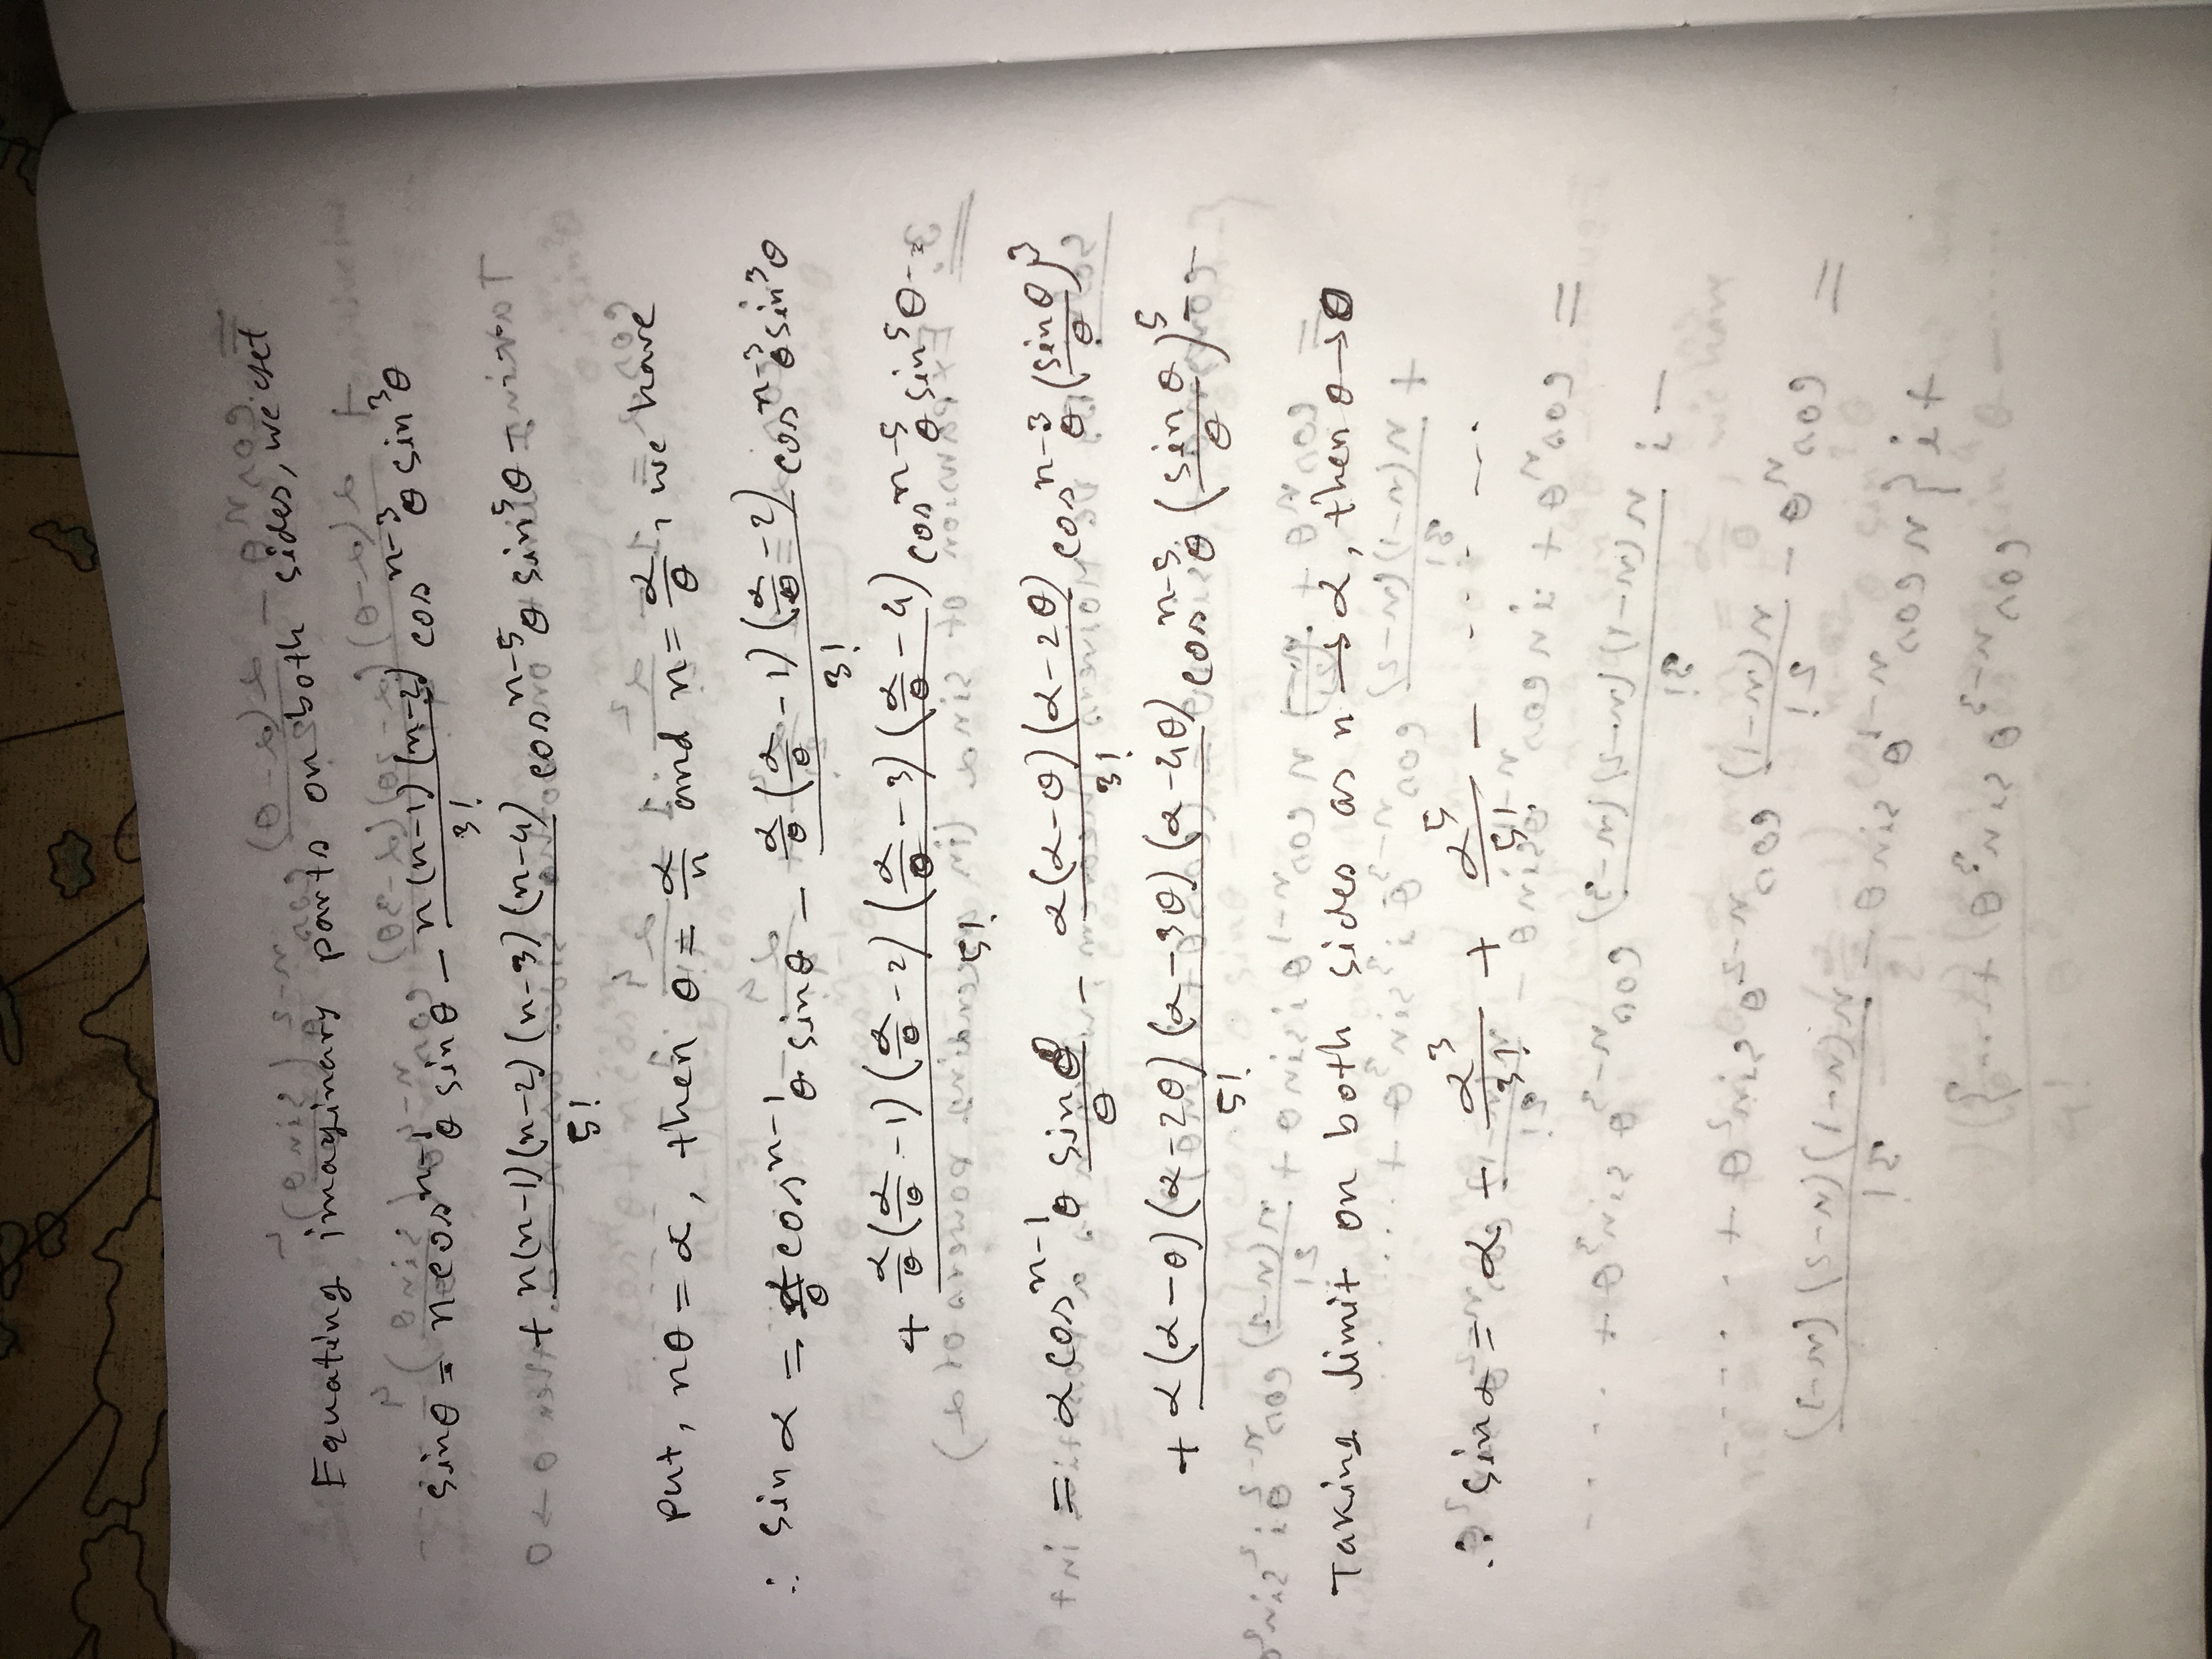 Equating imaginary parts on both sides, we get
sinθ = n cosⁿ⁻¹θ sinθ − n(n−1)(n−2)/3! cosⁿ⁻³θ sin³θ
+ n(n−1)(n−2)(n−3)(n−4)/5! cosⁿ⁻⁵θ sin⁵θ −
put, nθ = α, then θ = α/n and n = α/θ, we have
∴ sin α = α/θ cosⁿ⁻¹θ sinθ − α/θ(α/θ −1)(α/θ −2)/3! cosⁿ⁻³θ sin³θ
+ α/θ(α/θ −1)(α/θ −2)(α/θ −3)(α/θ −4)/5! cosⁿ⁻⁵θ sin⁵θ --
= α cosⁿ⁻¹θ sinθ/θ − α(α−θ)(α−2θ)/3! cosⁿ⁻³θ (sinθ/θ)³
+ α(α−θ)(α−2θ)(α−3θ)(α−4θ)/5! cosⁿ⁻⁵θ (sinθ/θ)⁵ --
Taking limit on both sides as n → α, then θ → 0
∴ sinα = α − α³/3! + α⁵/5! − ........